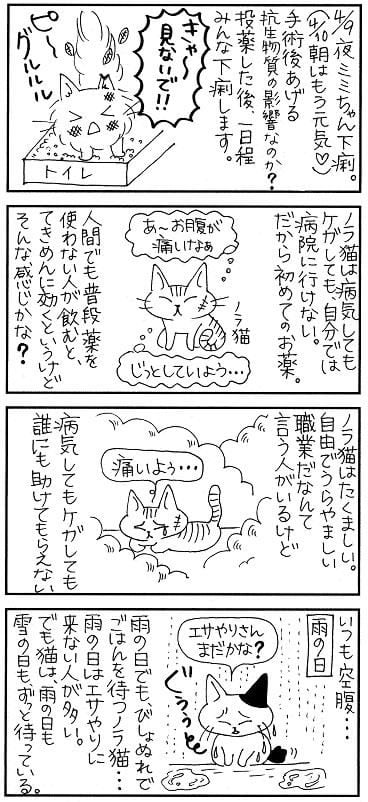 4/9夜ミミちゃん下痢。
(4/10朝はもう元気♡)
手術後あげる
抗生物質の影響なのか?
投薬した後、一日程
みんな下痢します。
キャ〜
見ないで!!
ピ〜
グルルルル
トイレ
ノラ猫は病気しても
ケガしても、自分では
病院に行けない。
だから初めてのお薬。
あ〜お腹が
痛いけなぁ
ノラ猫
じっとしていよう・・・
人間でも普段薬を
使わない人が飲むと、
てきめんに効くというけど
そんな感じかな?
ノラ猫はたくましい。
自由でうらやましい
職業だなんて
言う人がいるけど
痛いよぅ・・・
病気してもケガしても
誰にも助けてもらえない
いつも空腹・・・
雨の日
エサやりさん
まだかな?
ぐぅぅぅ〜
雨の日でも、びしょぬれで
ごはんを待つノラ猫・・・
雨の日はエサやりに
来ない人が多い。
でも猫は、雨の日も
雪の日も、ずっと待っている。